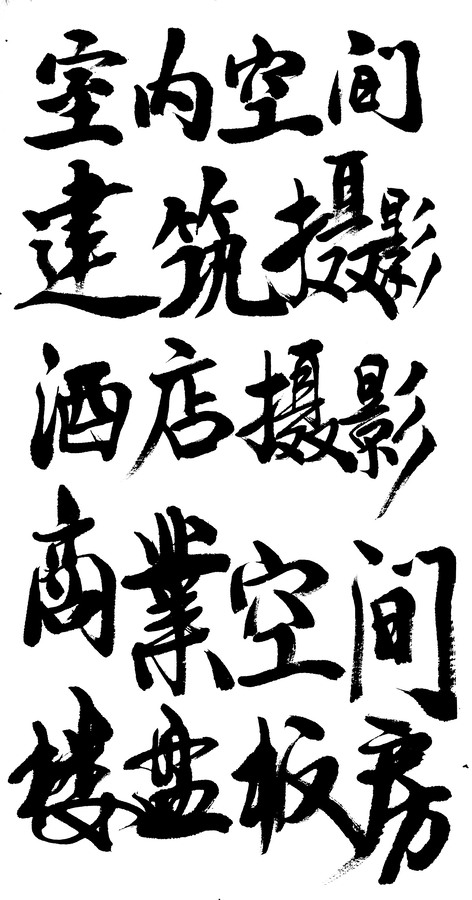 室内空间
建筑摄影
酒店摄影
商業空间
楼盘板房